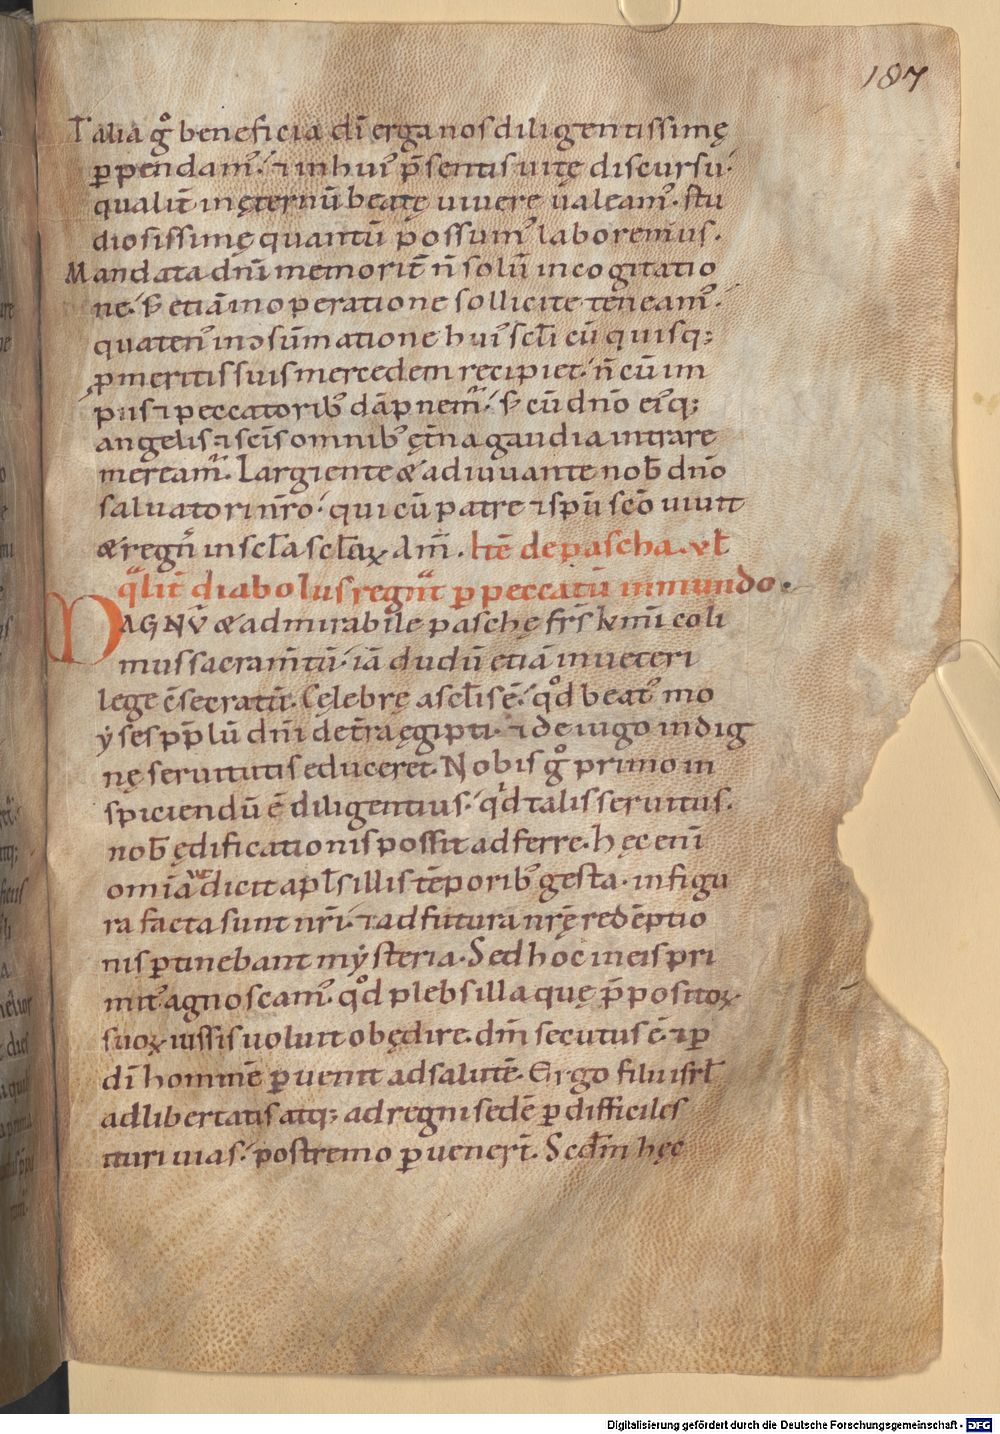 187
Talia gͦ beneficia dī erga nos diligentissimę
ꝑpendamꝰ. ⁊ in huiꝰ p̄sentis uitę discursu.
qualit̄ in ęternū beatę uiuere ualeamꝰ. stu
diosissimę quantū possumꝰ laboremus.
Mandata dn̄i memorit̄ n̄ solū in cogitatio
ne. s; etiā in operatione sollicite teneamꝰ.
quatenꝰ in ↄsūmatione huiꝰ scl̄i cū quisq;
ꝓ meritis suis mercedem recipiet. n̄ cū im
piis ⁊ peccatoribꝰ dāpnemur. s; cū dn̄o eiꝰq;
angelis ⁊ sc̄is omnibꝰ ęt̄na gaudia intrare
mereamur. Largiente & adiuuante nob̄ dn̄o
saluatori nr̄o. qui cū patre ⁊ sp̄u sc̄o uiuit
& regn̄ in scl̄a scl̄aꝝ. Am̄. Itē de pascha. ul̄
qᵃlit̄ diabolus regnᵃt ꝑ peccatū in mundo.
MAGNŪ & admirabile paschę fr̄s km̄i coli
mus sacram̄tū. iā dudū etiā in ueteri
lege ↄ̄secratū. Cęlebrę a scl̄is ē. qͦd beatꝰ mo
ẏses pp̄lū dn̄i de t̄ra ęgipti. ⁊ de iugo indig
nę seruitutis educeret. Nobis gͦ primo in
spiciendū ē diligentius. qͥd talis seruitus.
nob̄ ędificationis possit adferre. hęc enī
om̄ia ut dicit apl̄s illis tēporibꝰ gesta. in figu
ra facta sunt nr̄i. ⁊ ad futura nr̄ę redēptio
nis ꝑtinebant mẏsteria. Sed hoc in eis pri
mitꝰ agnoscamꝰ. qͦd plebs illa quę p̄positoꝝ
suoꝝ iussis uoluit obędire. dm̄ secutus ē. ⁊ ꝑ
dī hominē ꝑuenit ad salutē. Ergo filii isrl̄
ad libertatis atq; ad regni sedē ꝑ difficiles
ituri uias. postremo ꝑuener̄t. Scdm̄ hęc
Digitalisierung gefördert durch die Deutsche Forschungsgemeinschaft - DFG